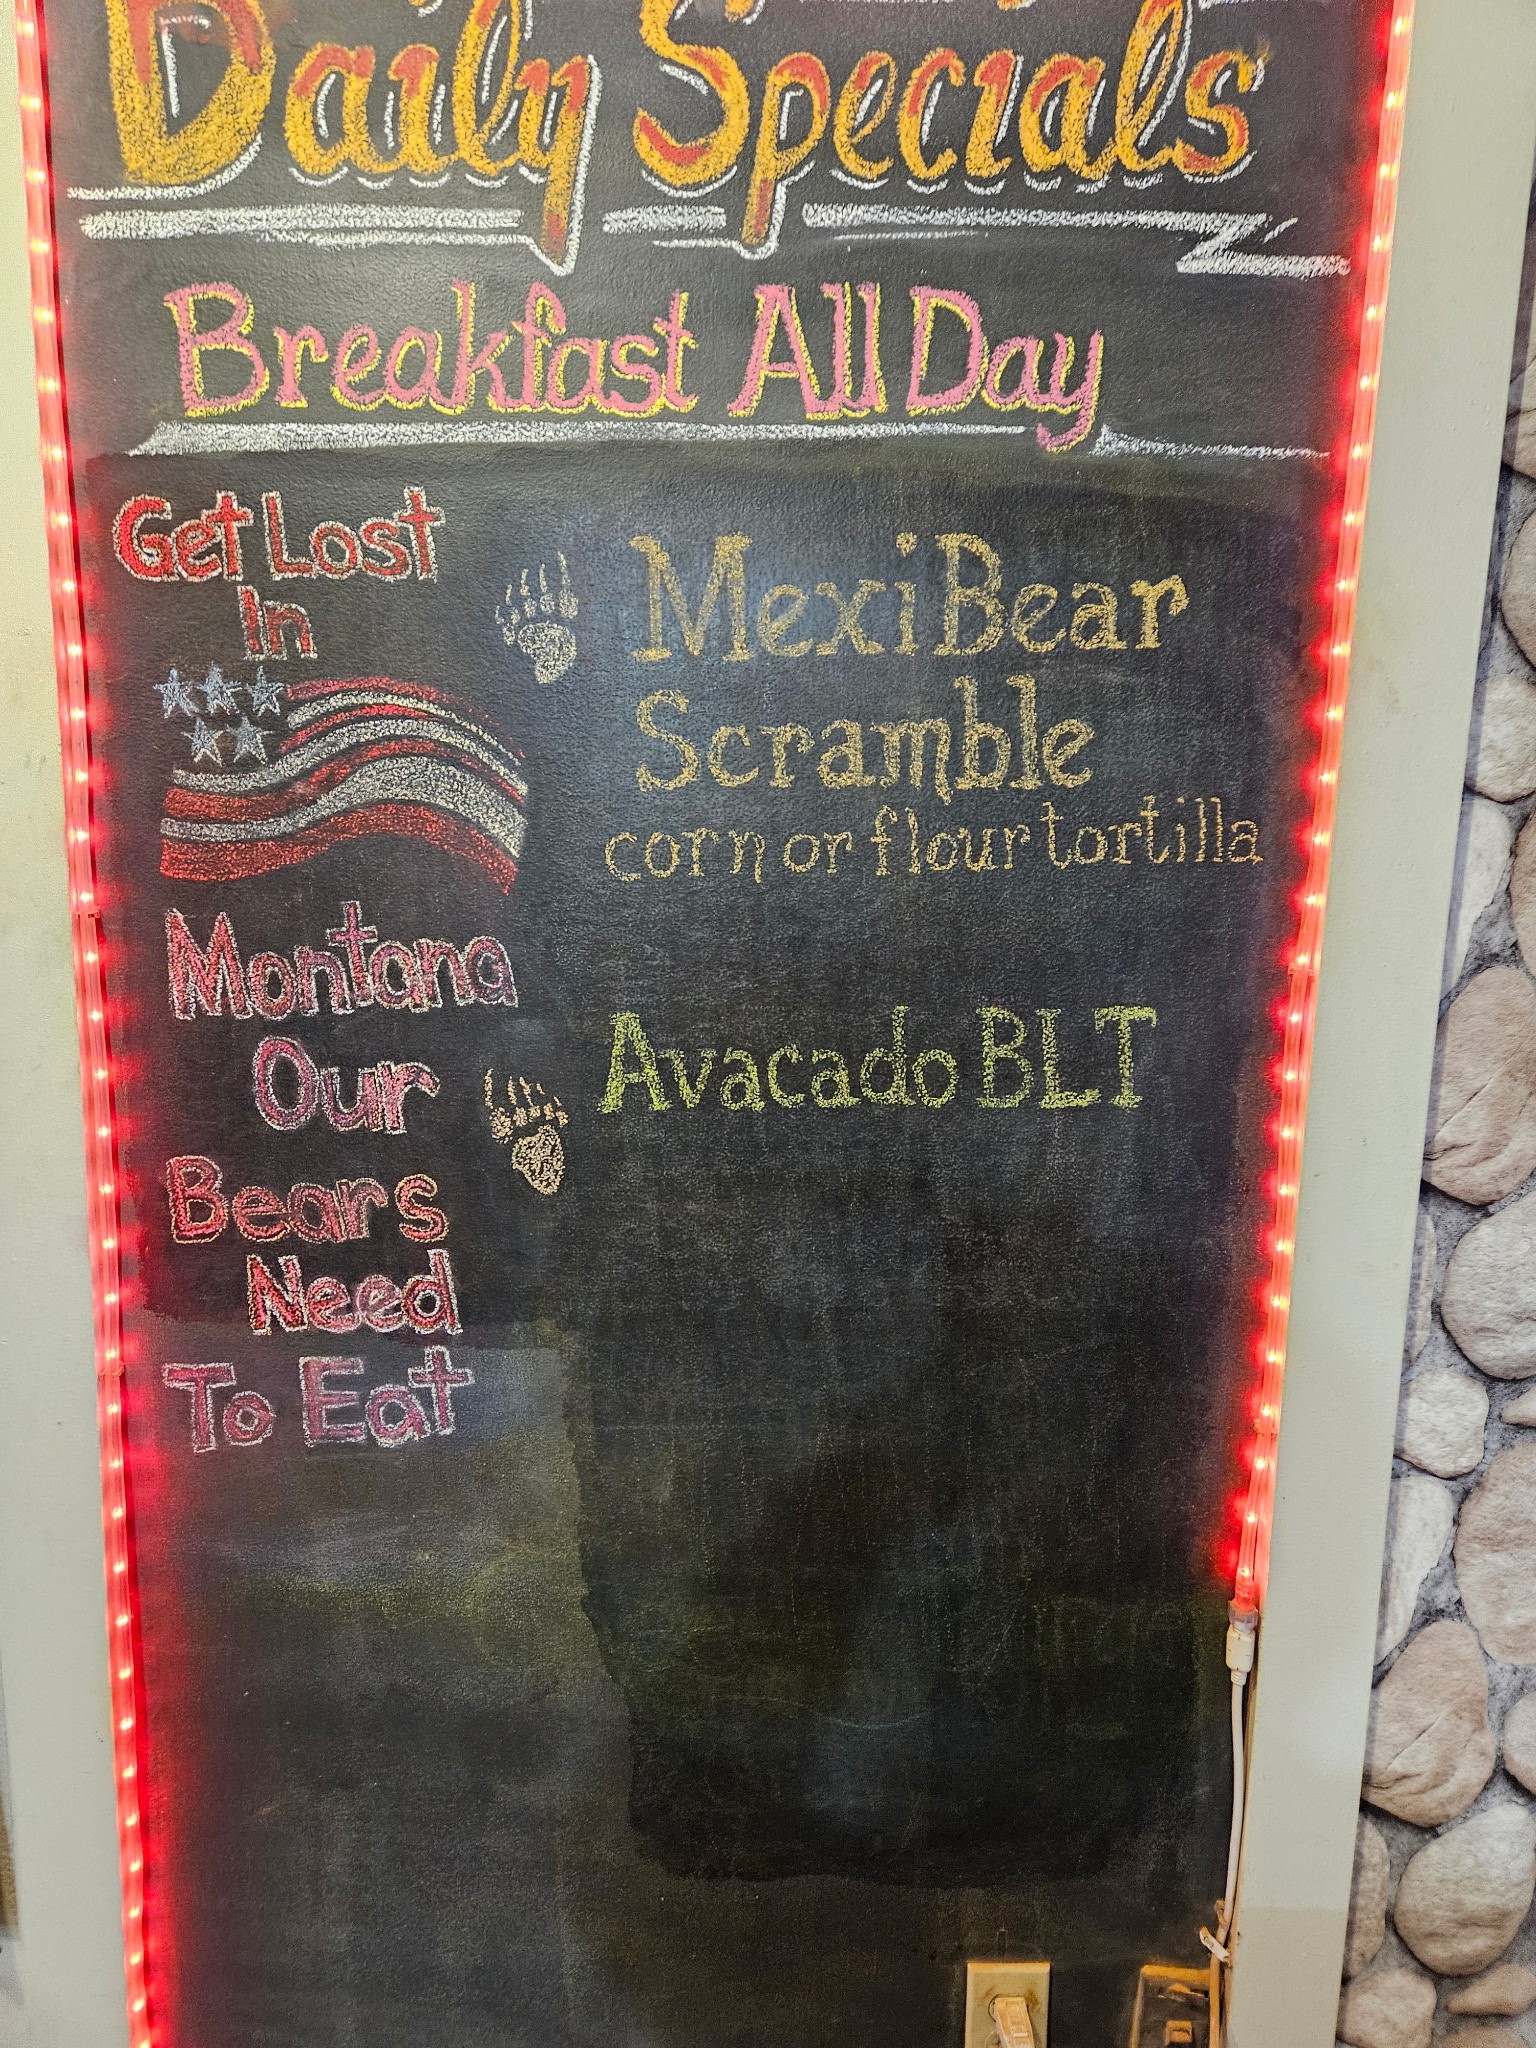 Daily Specials
Breakfast All Day
Get Lost
In
Montana
Our
Bears
Need
To Eat
Mexi Bear
Scramble
corn or flour tortilla
Avacado BLT